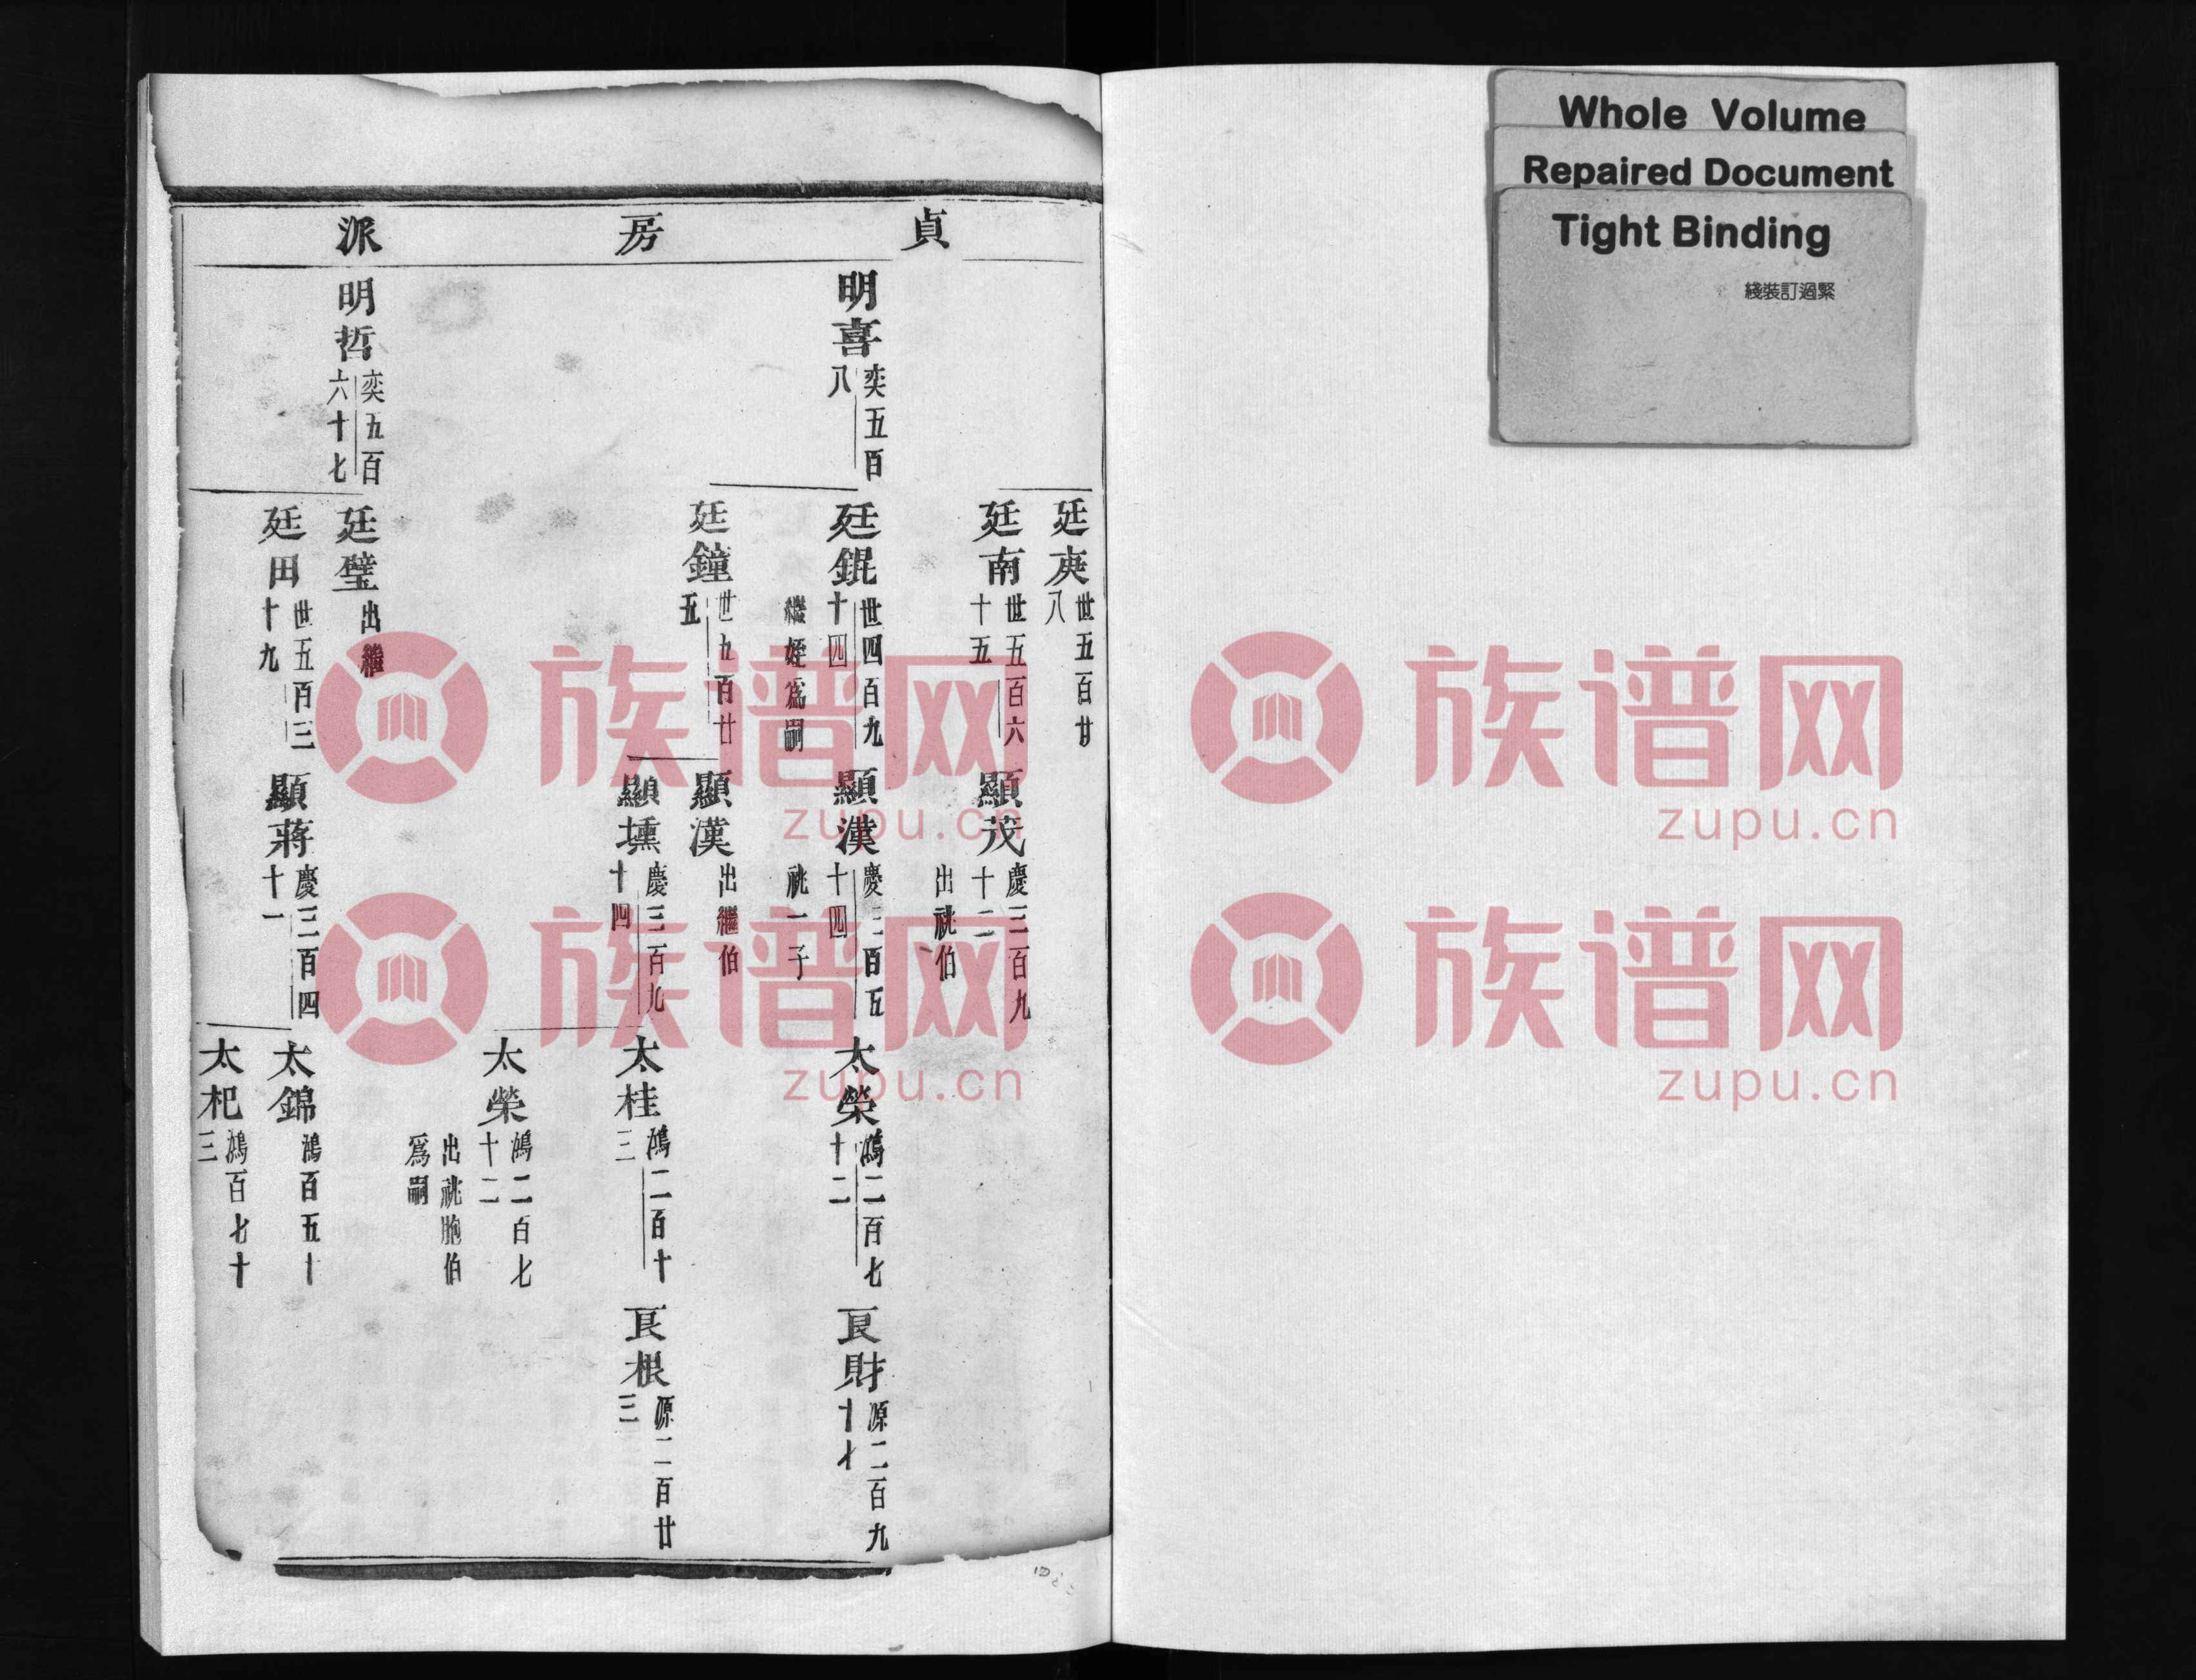 貞房派
廷庾世五百廿八
廷南世五百六十五
顯茂慶三百九十二
出祧伯
明喜奕五百八
廷錕世四百九十四
繼姪為嗣
顯漢慶三百五十四
祧一子
太榮鴻二百七十二
良財源二百九十七
廷鐘世九百廿五
顯漢出繼伯
顯壎慶三百九十四
太桂鴻二百十三
良根源二百廿三
太榮鴻二百七十二
出祧胞伯為嗣
明哲奕五百六十七
廷璧出繼
廷田世五百三十九
顯蔣慶三百四十一
太錦鴻百五十
太杞鴻百七十三
Whole Volume
Repaired Document
Tight Binding
綫裝訂過緊
族谱网
zupu.cn
族谱网
zupu.cn
族谱网
zupu.cn
族谱网
zupu.cn